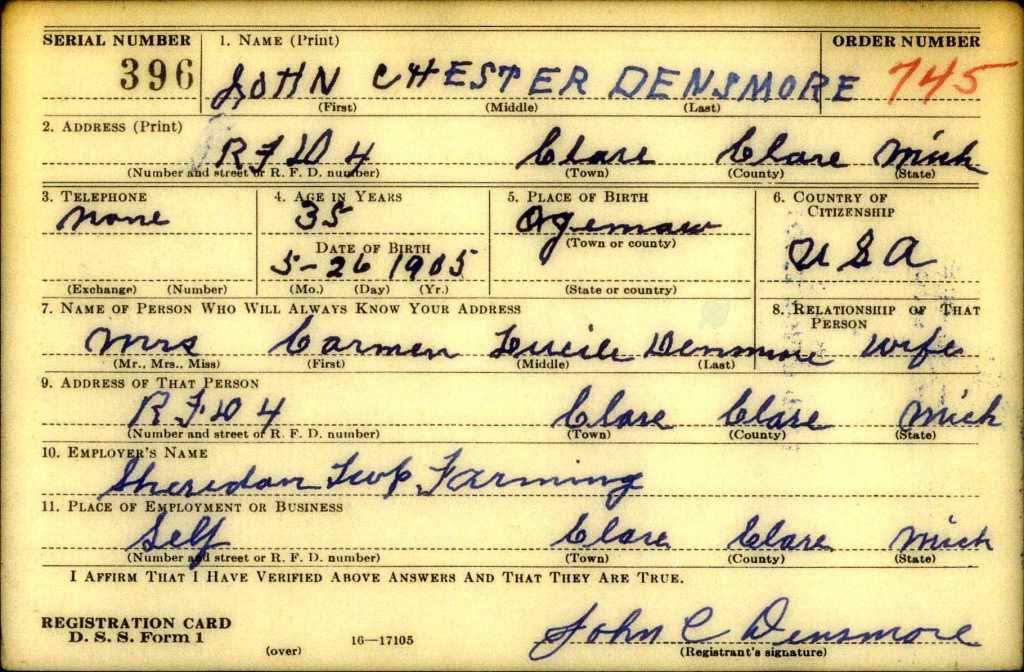 SERIAL NUMBER 1. NAME (Print) ORDER NUMBER
396 JOHN CHESTER DENSMORE 745
(First) (Middle) (Last)
2. ADDRESS (Print)
R F D 4 Clare Clare Mich
(Number and street or R. F. D. number) (Town) (County) (State)
3. TELEPHONE 4. AGE IN YEARS 5. PLACE OF BIRTH 6. COUNTRY OF CITIZENSHIP
None 35 Ogemaw
DATE OF BIRTH (Town or county) U S A
5-26 1905
(Exchange) (Number) (Mo.) (Day) (Yr.) (State or country)
7. NAME OF PERSON WHO WILL ALWAYS KNOW YOUR ADDRESS 8. RELATIONSHIP OF THAT PERSON
Mrs Carmen Lucile Densmore wife
(Mr., Mrs., Miss) (First) (Middle) (Last)
9. ADDRESS OF THAT PERSON
R F D 4 Clare Clare Mich
(Number and street or R. F. D. number) (Town) (County) (State)
10. EMPLOYER'S NAME
Sheridan Twp Farming
11. PLACE OF EMPLOYMENT OR BUSINESS
Self Clare Clare Mich
(Number and street or R. F. D. number) (Town) (County) (State)
I AFFIRM THAT I HAVE VERIFIED ABOVE ANSWERS AND THAT THEY ARE TRUE.
REGISTRATION CARD
D. S. S. Form 1 16—17105 John C Densmore
(over) (Registrant's signature)